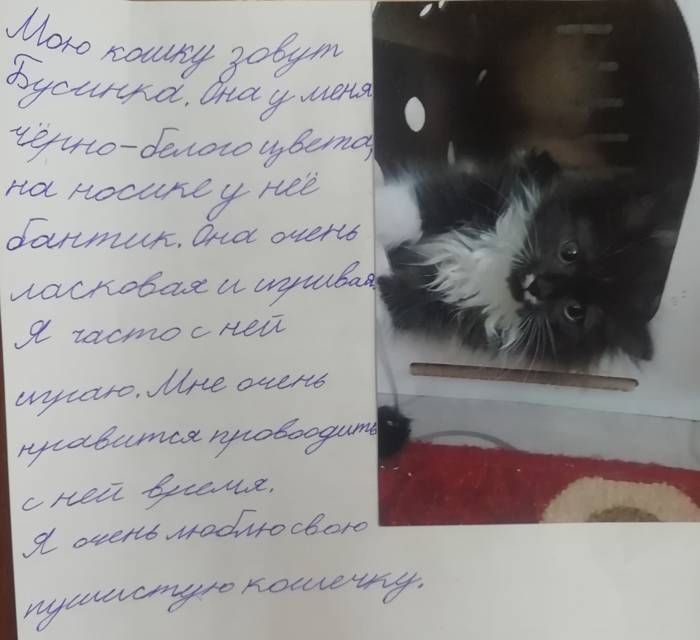 Мою кошку зовут
Бусинка. Она у меня
чёрно-белого цвета,
на носике у неё
бантик. Она очень
ласковая и игривая.
Я часто с ней
играю. Мне очень
нравится провоодить
с ней время.
Я очень люблю свою
пушистую кошечку.